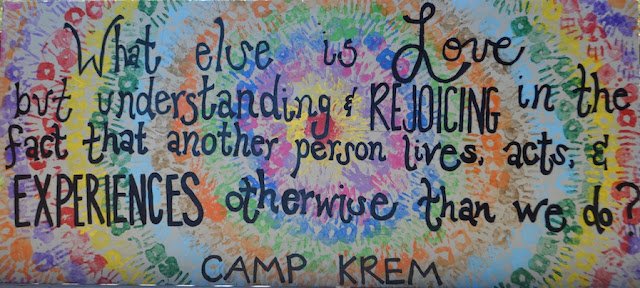 What else is Love
but understanding & REJOICING in the
fact that another person lives, acts, &
EXPERIENCES otherwise than we do?
CAMP KREM